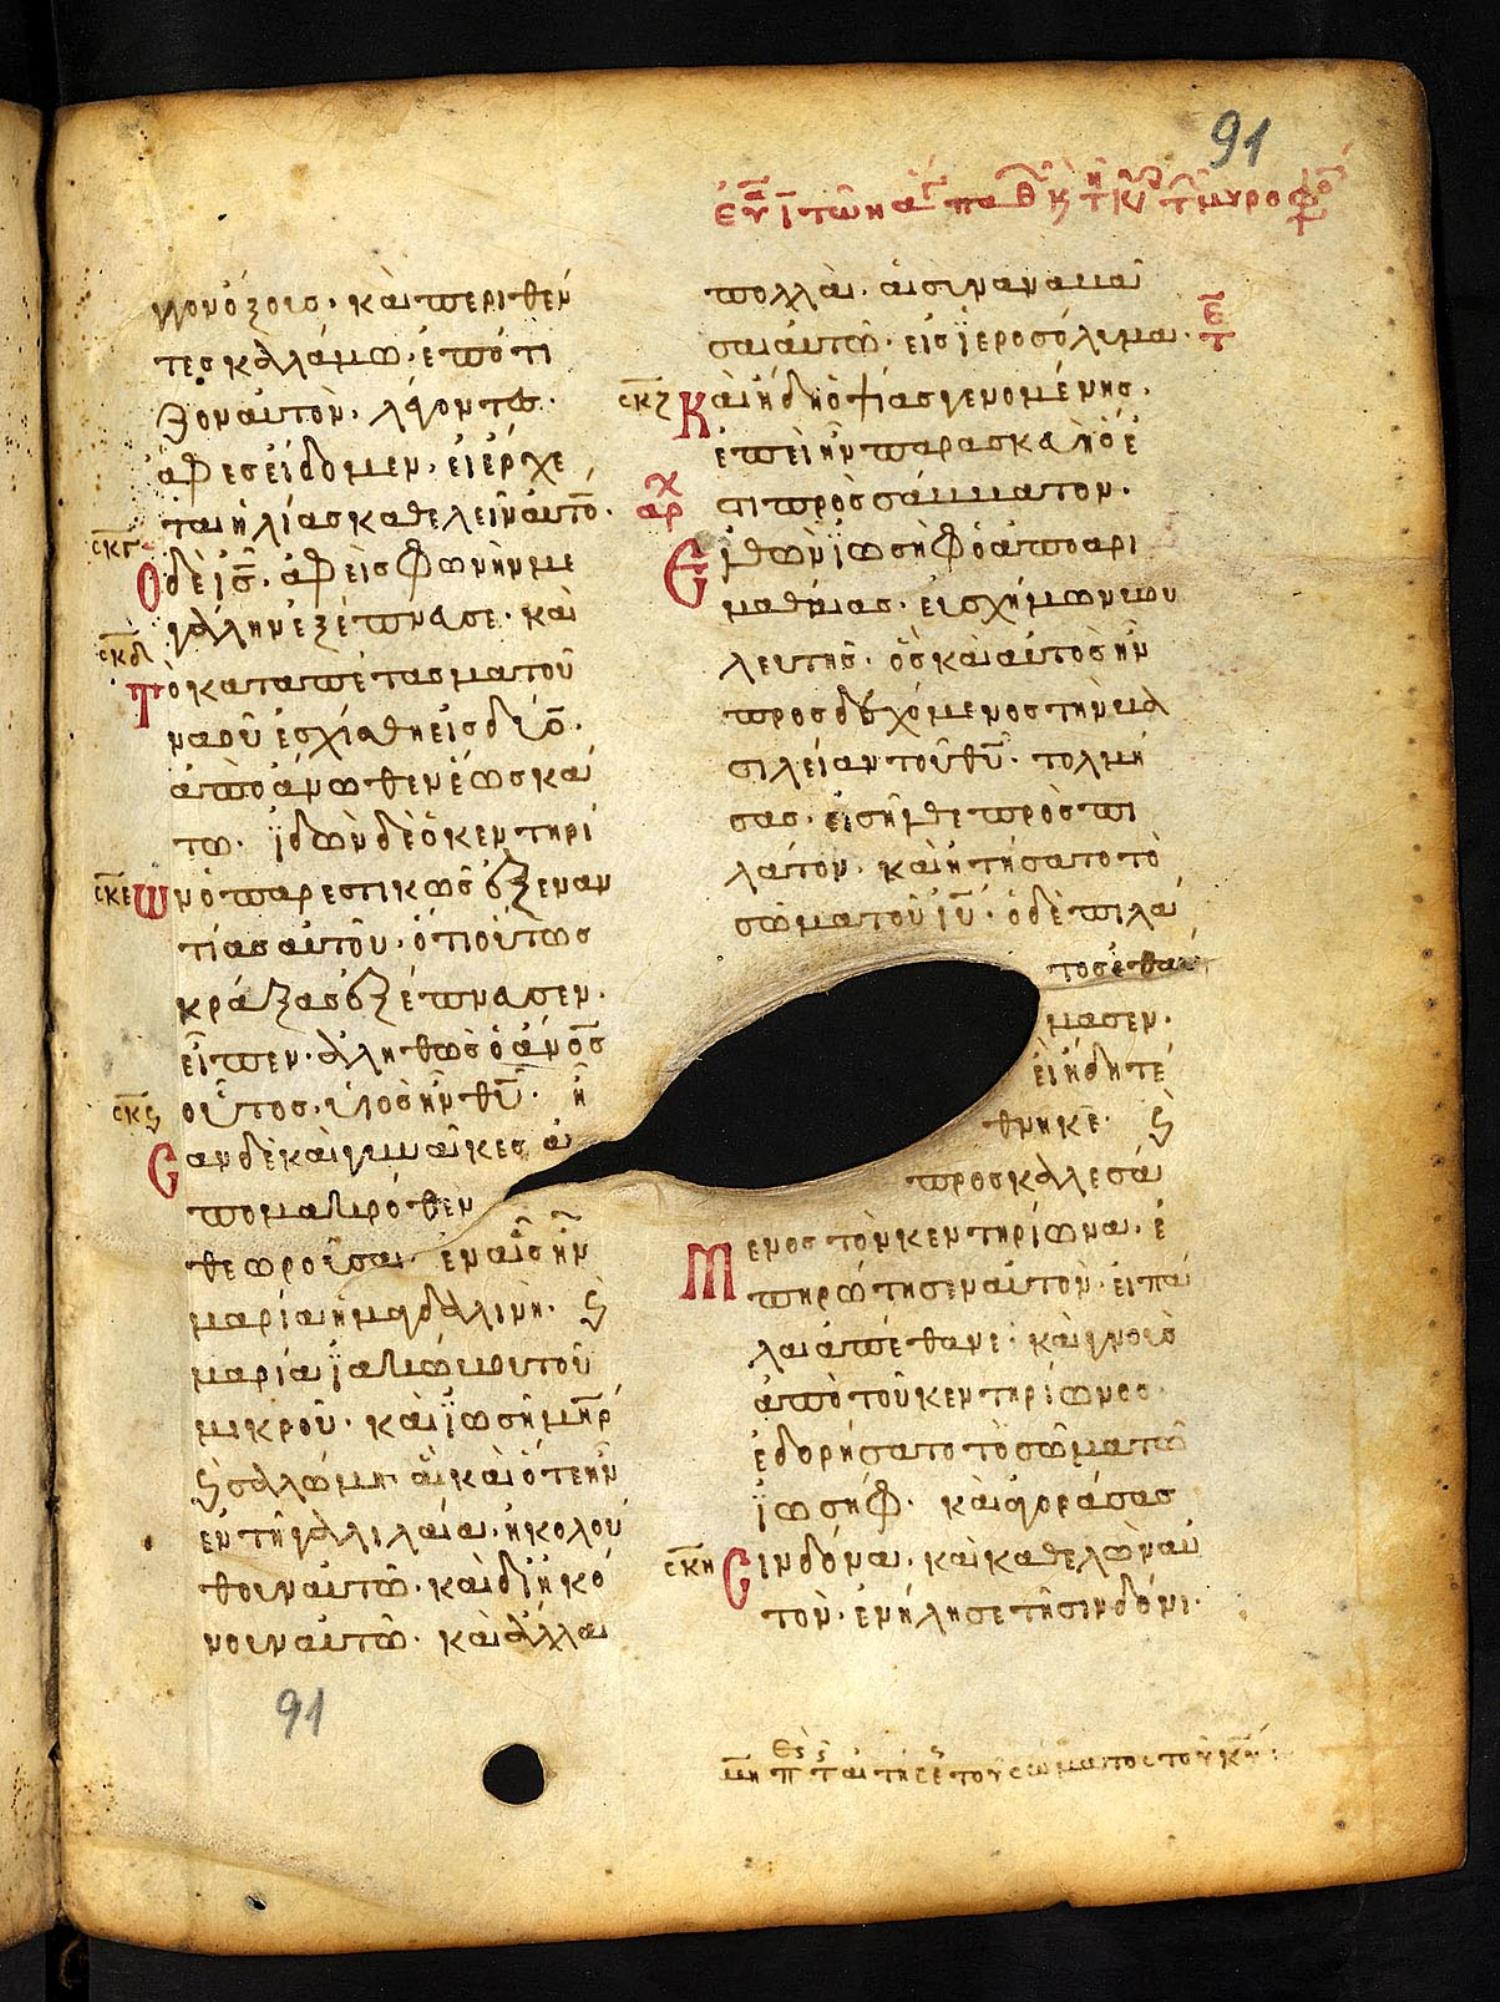 91
εὐα ι τῶν ἁγ παθ κ τ κυ τ μυροφο
γον ὄξους· καὶ περιθέν
τες καλάμω· ἐπότι
ζον αὐτὸν· λέγοντες·
ἄφες εἴδομεν· εἰ ἔρχε
ται ἡλίας καθελεῖν αὐτὸ·
σκγ
ὁ δὲ ις· ἀφεὶς φωνὴν με
γάλην ἐξέπνευσε· καὶ
σκδ
τὸ καταπέτασμα τοῦ
ναοῦ ἐσχίσθη εἰς δύο·
ἀπὸ ἄνωθεν ἕως κά
τω· ϊδὼν δὲ ὁ κεντηρί
σκε
ων ὁ παρεστικὼς ἐξεναν
τίας αὐτοῦ· ὅτι οὕτως
κράξας ἐξέπνευσεν·
εἶπεν· ἀληθῶς ὁ ἄνος
οὗτος· υἱὸς ἦν θυ· ἦ
σκς
σαν δὲ καὶ γυναῖκες ἀ
πο μακρόθεν
θεωροῦσαι· ἐν αἷς ἦν
μαρία ἡ μαγδαλινὴ· κ
μαρία ϊακώβου τοῦ
μικροῦ· καὶ ϊωσῆ μηρ
κ σαλώμη· αἳ καὶ ὅτε ἦν
ἐν τῆ γαλιλαία· ἠκολού
θουν αὐτῶ· καὶ διηκό
νουν αὐτῶ· καὶ ἄλλαι
91
πολλαὶ· αἱ συναναβᾶ
σαι αὐτῶ· εἰς ϊεροσόλυμα·
σκζ
καὶ ἤδη ὀψίας γενομένης·
ἐπεὶ ἦν παρασκευὴ ὅ ἐ
αρχ
στι πρὸς σάββατον·
ἐλθὼν ϊωσὴφ ὁ ἀπο αρι
μαθαίας· εὐσχήμων βου
λευτης· ὃς καὶ αὐτὸς ἦν
προσδεχόμενος τὴν βα
σιλείαν τοῦ θυ· τολμή
σας· εἰσῆλθε πρὸς πι
λάτον· καὶ ἠτήσατο τὸ
σῶμα τοῦ ιυ· ὁ δὲ πιλά
τος ἐθαύ
μασεν·
εἰ ἤδη τέ
θνηκε· κ
προσκαλεσά
μενος τὸν κεντηρίωνα· ἐ
πηρώτησεν αὐτὸν· εἰ πά
λαι ἀπέθανε· καὶ γνοὺς
ἀπὸ τοῦ κεντηρίωνος·
ἐδορήσατο τὸ σῶμα τῶ
ϊωσὴφ· καὶ ἀγοράσας
σκη
σινδόνα· καὶ καθελὼν αὐ
τὸν· ἐνήλησε τῆ σινδόνι·
τοῦ σώματος τοῦ κυ